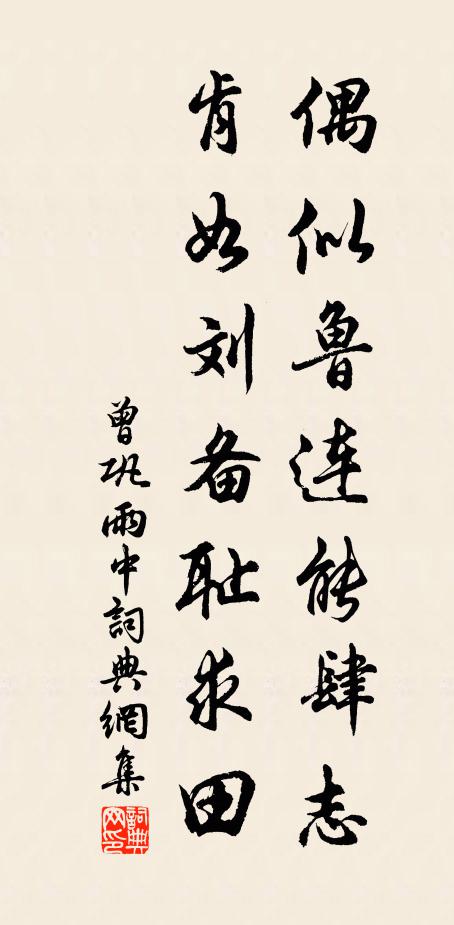 偶似鲁连能肆志
肯如刘备耻求田
曾巩雨中詞典網集
詞典網印